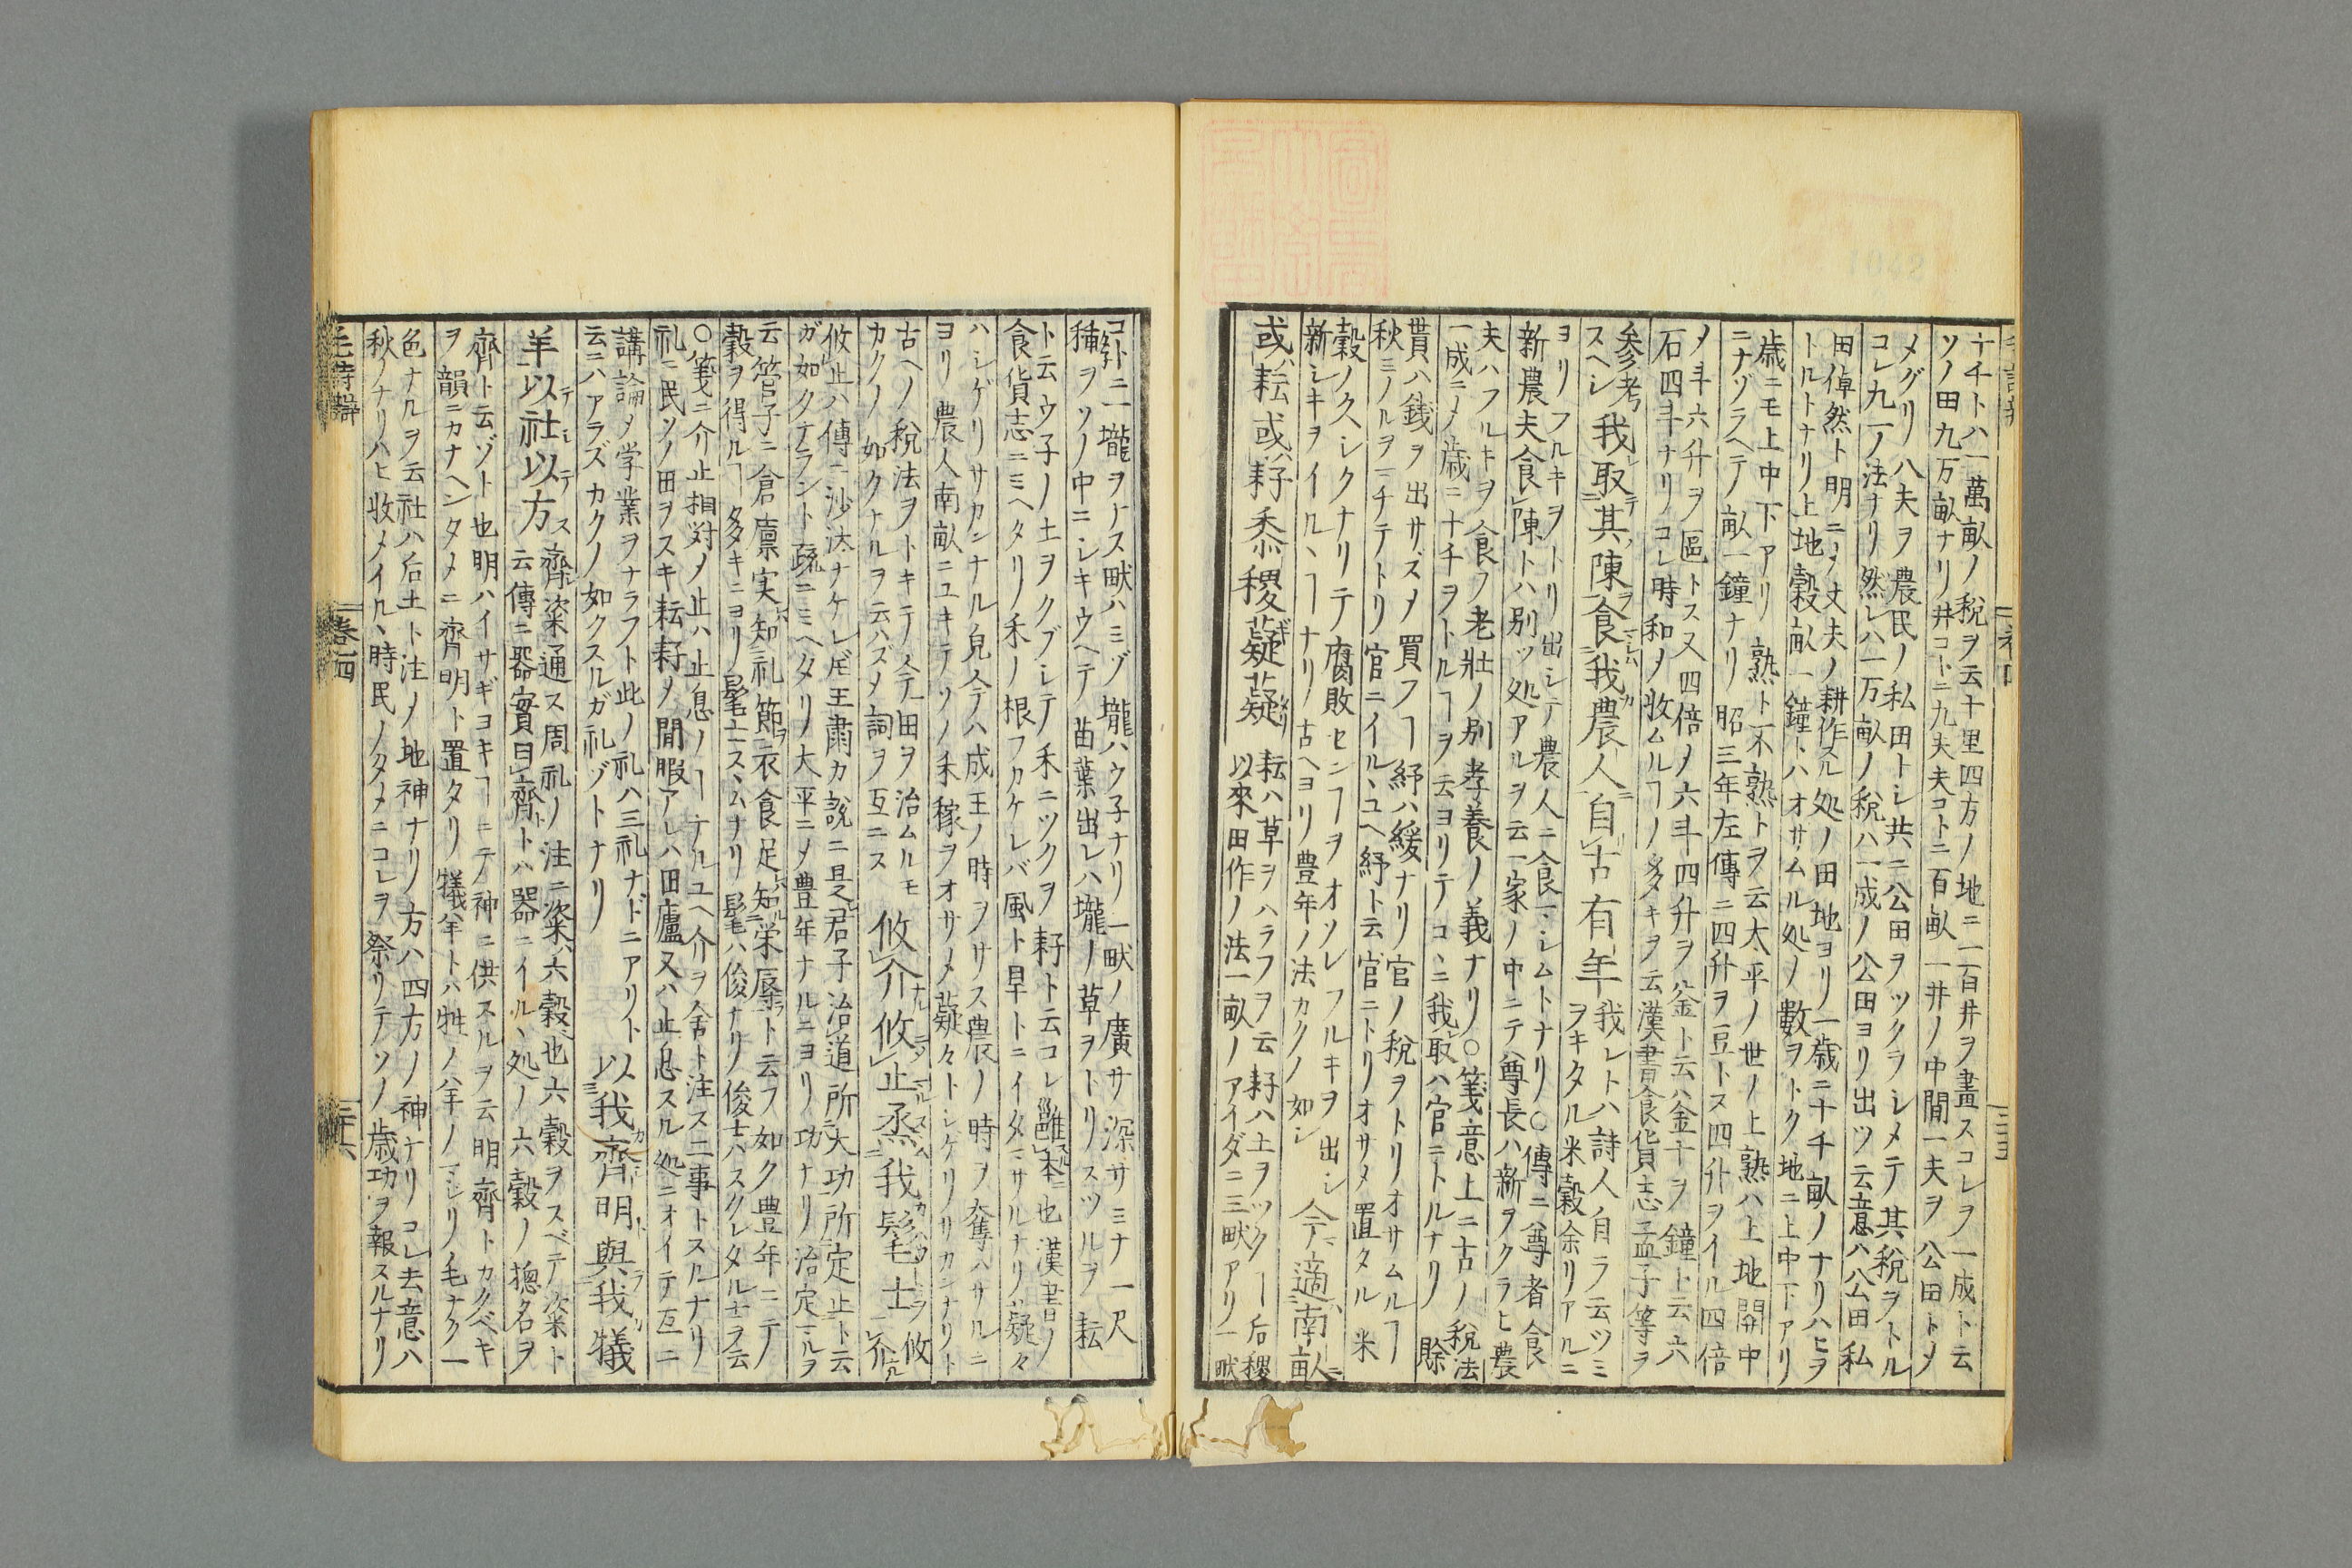 十千トハ一萬畝ノ税ヲ云十里四方ノ地ニ一百井ヲ畫スコレヲ一成ト云
ソノ田九万畝ナリ井コトニ九夫夫コトニ百畝一井ノ中間一夫ヲ公田トメ
メグリ八夫ヲ農民ノ私田トシ共ニ公田ヲツクラシメテ其税ヲトル
コレ九一ノ法ナリ然レハ一万畝ノ税ハ一成ノ公田ヨリ出ツ云意ハ公田私
田倬然ト明ニメ丈夫ノ耕作スル処ノ田地ヨリ一歳ニ十千畝ノナリハヒヲ
トルトナリ上地穀畝一鐘トハオサムル処ノ數ヲトク地ニ上中下アリ
歳ニモ上中下アリ熟ト不熟トヲ云大平ノ世ノ上熟ハ上地開中
ニナゾラヘテ畝一鐘ナリ昭三年左傳ニ四升ヲ豆トス四升ヲイル四倍
メ斗六升ヲ區トス又四倍メ六斗四升ヲ釜ト云ハ釜十ヲ鐘ト云六
石四斗ナリコレ時和メ收ムルヿノ多キヲ云漢書食貨志孟子等ヲ
参考スヘシ
我取其陳食我農人自古有年
我レトハ詩人自ラ云ツミ
ヲキタル米穀余リアルニ
ヨリフルキヲトリ出シテ農人ニ食ハシムトナリ○傳ニ尊者食
新農夫食陳トハ別ツ処アルヲ云一家ノ中ニテ尊長ハ新ヲクラヒ農
夫ハフルキヲ食フ老壯ノ別孝養ノ義ナリ○箋意上ニ古ノ税法
一成ニメ歳ニ十千ヲトルヿヲ云ヨリテコヽニ我取ハ官ニトルナリ賖
貰ハ銭ヲ出サズメ買フヿ紓ハ緩ナリ官ノ税ヲトリオサムルヿ
秋ミノルヲ
官ニイルヽユヘ紓ト云官ニトリオサメ置タル米
穀ノ久シクナリテ腐敗センヿヲオソレフルキヲ出シ
新シキヲイルヽヿナリ古ヘヨリ豊年ノ法カクノ如シ
今適南畝
或耘或耔黍稷薿薿
耘ハ草ヲハラフヲ云耔ハ土ヲツクヿ后稷
以來田作ノ法一畝ノアイダニ三畎アリ一畎
コトニ一壠ヲナス畎ハミゾ壠ハウ子ナリ一畎ノ廣サ深サミナ一尺
種ヲソノ中ニシキウヘテ苗葉出レハ壠ノ草ヲトリスツルヲ耘
ト云ウ子ノ土ヲクブシテ禾ニツクヲ耔ト云コレ雝本也漢書ノ
食貨志ニミヘタリ禾ノ根フカケレバ風ト旱トニイタマサルナリ薿々
ハシゲリサカンナル皃今ハ成王ノ時ヲサス農ノ時ヲ奪ハサルニ
ヨリ農人南畝ニユキテソノ禾稼ヲオサメ薿々トシケリサカンナリト
古ヘノ税法ヲトキテ今田ヲ治ムルモ
カクノ如クナルヲ云ハズメ詞ヲ互ニス
攸介攸止烝我髦士
攸介
攸止ハ傳ニ沙汰ナケレ𪜈王肅カ説ニ是君子治道所大功所定止ト云
ガ如クナラント疏ニミヘタリ大平ニメ豊年ナルニヨリ功ナリ治定マルヲ
云管子ニ倉廩実知礼節衣食足知栄辱ト云フ如ク豊年ニテ
穀ヲ得ルヿ多キニヨリ髦士ニスヽムナリ髦ハ俊ナリ俊士ハスクレタル士ヲ云
○箋ニ介止相対メ止ハ止息ノヿナルユヘ介ヲ舎ト注ス二事トスルナリ
礼ニ民ソノ田ヲスキ耘耔メ閒暇アレハ田廬又ハ止息スル処ニオイテ互ニ
講論メ学業ヲナラフト此ノ礼ハ三礼ナドニアリト
云ニハアラズカクノ如クスルガ礼ゾトナリ
以我齊明與我犠
羊以社以方
齊粢通ス周礼ノ注ニ粢ハ六穀也六穀ヲスベテ粢ト
云傳ニ器實曰齊トハ器ニイルヽ処ノ六穀ノ摠名ヲ
齊ト云ゾト也明ハイサギヨキヿニテ神ニ供スルヲ云明齊トカクベキ
ヲ韻ニカナヘンタメニ齊明ト置タリ犠羊トハ牲ノ羊ノマシリノ毛ナク一
色ナルヲ云社ハ后土ト注ノ地神ナリ方ハ四方ノ神ナリコレ去意ハ
秋ノナリハヒ收メイルヽ時民ノタメニコレヲ祭リテソノ歳功ヲ報スルナリ
毛詩辯
巻四